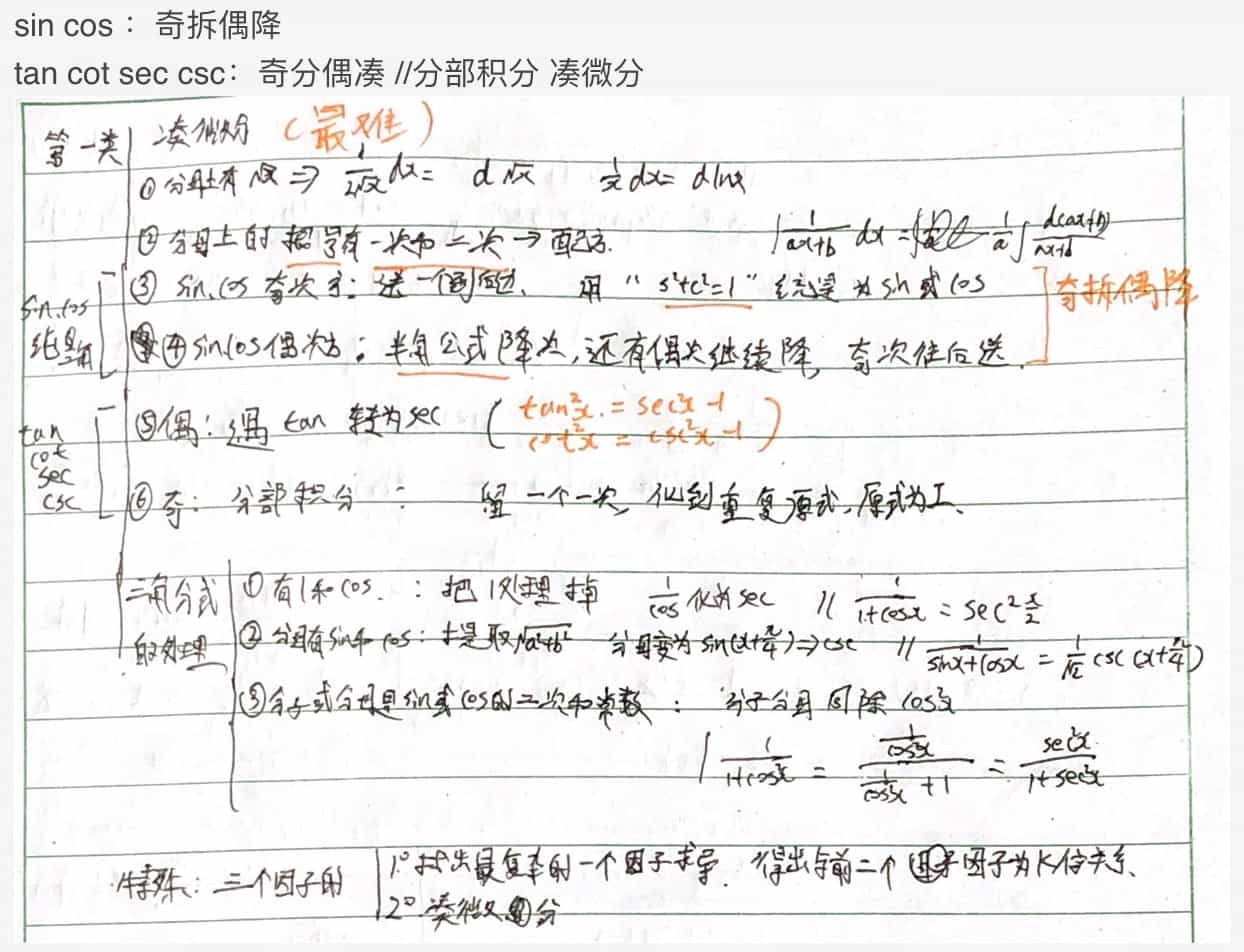 sin cos ： 奇拆偶降
tan cot sec csc：奇分偶凑 //分部积分 凑微分
第一类 凑微分 (最难)
① 分母上有 √x ⇒ 1/(2√x) dx = d√x 1/x dx = dlnx
② 分母上的 根号有一次和二次 → 配方. | 1/(ax+b) dx = 1/a ∫ d(ax+b)/(ax+b)
sin.cos ③ sin.cos 奇次方: 送一个到后边、 用 “s²+c²=1” 统一为 sin 或 cos 奇拆偶降
④ sin cos 偶次方: 半角公式降次,还有偶次继续降, 奇次往后送.
tan cot sec csc
⑤ 偶: 遇 tan 转为 sec ( tan²x = sec²x -1
cot²x = csc²x -1 )
⑥ 奇: 分部积分 : 留一个一次, 化到重复原式,原式为I、
三角分式的处理 ① 有1和cos : 把1处理掉 1/cos 化为 sec // 1/(1+cosx) = sec² x/2
② 分母有sin和cos: 提取√(a²+b²) 分母变为 sin(x+π/4) ⇒ csc // 1/(sinx+cosx) = 1/√2 csc(x+π/4)
③ 分子或分母是sin或cos的二次和常数 : 分子分母同除cos²x
| 1/(1+cos²x) = (1/cos²x)/(1/cos²x + 1) = sec²x/(1+sec²x)
特殊: 三个因子的 1° 找出最复杂的一个因子求导. 得出与前二个因子为K倍关系、
2° 凑微分